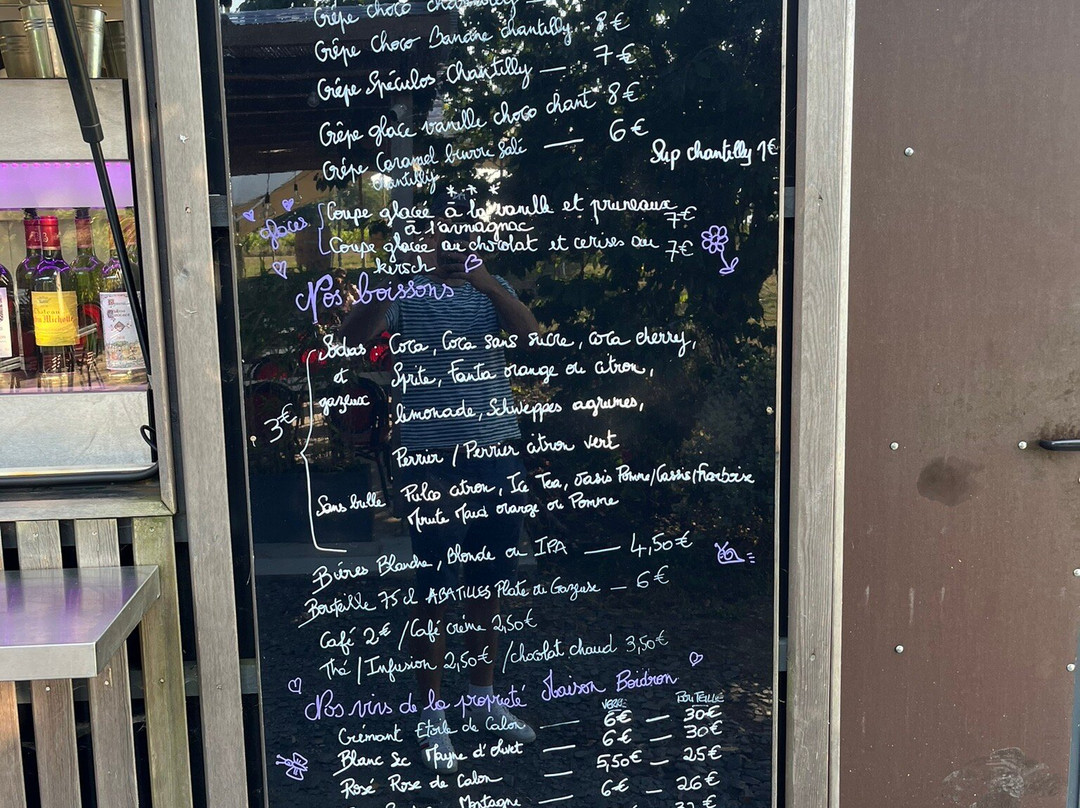 Crêpe choco
Crêpe Choco Banane chantilly 8€
Crêpe Spéculos Chantilly — 7€
Crêpe glace vanille choco chant 8€
Crêpe Caramel beurre salé — 6€
chantilly
Sup chantilly 1€
***
glaces
Coupe glacée à la vanille et pruneaux
à l'armagnac 7€
Coupe glacée au chocolat et cerises au 7€
kirsch
Nos boissons
Sodas : Coca, Coca sans sucre, coca cherry,
et Sprite, Fanta orange ou citron,
gazeux limonade, Schweppes agrumes,
3€
Perrier / Perrier citron vert
Sans bulle Pulco citron, Ice Tea, Oasis Pomme/Cassis/Framboise
Minute Maid orange ou Pomme
Bières Blanche, Blonde ou IPA — 4,50€
Bouteille 75cl ABATILLES Plate ou Gazeuse — 6€
Café 2€ / Café crème 2,50€
Thé / Infusion 2,50€ / chocolat chaud 3,50€
Nos vins de la propriété Maison Boidron
VERRE BOUTEILLE
Crémant Etoile de Calon — 6€ — 30€
Blanc Sec Mayne d'Olivet — 6€ — 30€
Rosé Rose de Calon — 5,50€ — 25€
Montagne — 6€ — 26€